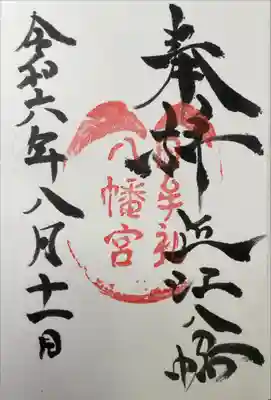 奉拝 近江八幡
日牟礼
八幡宮
令和六年八月十一日